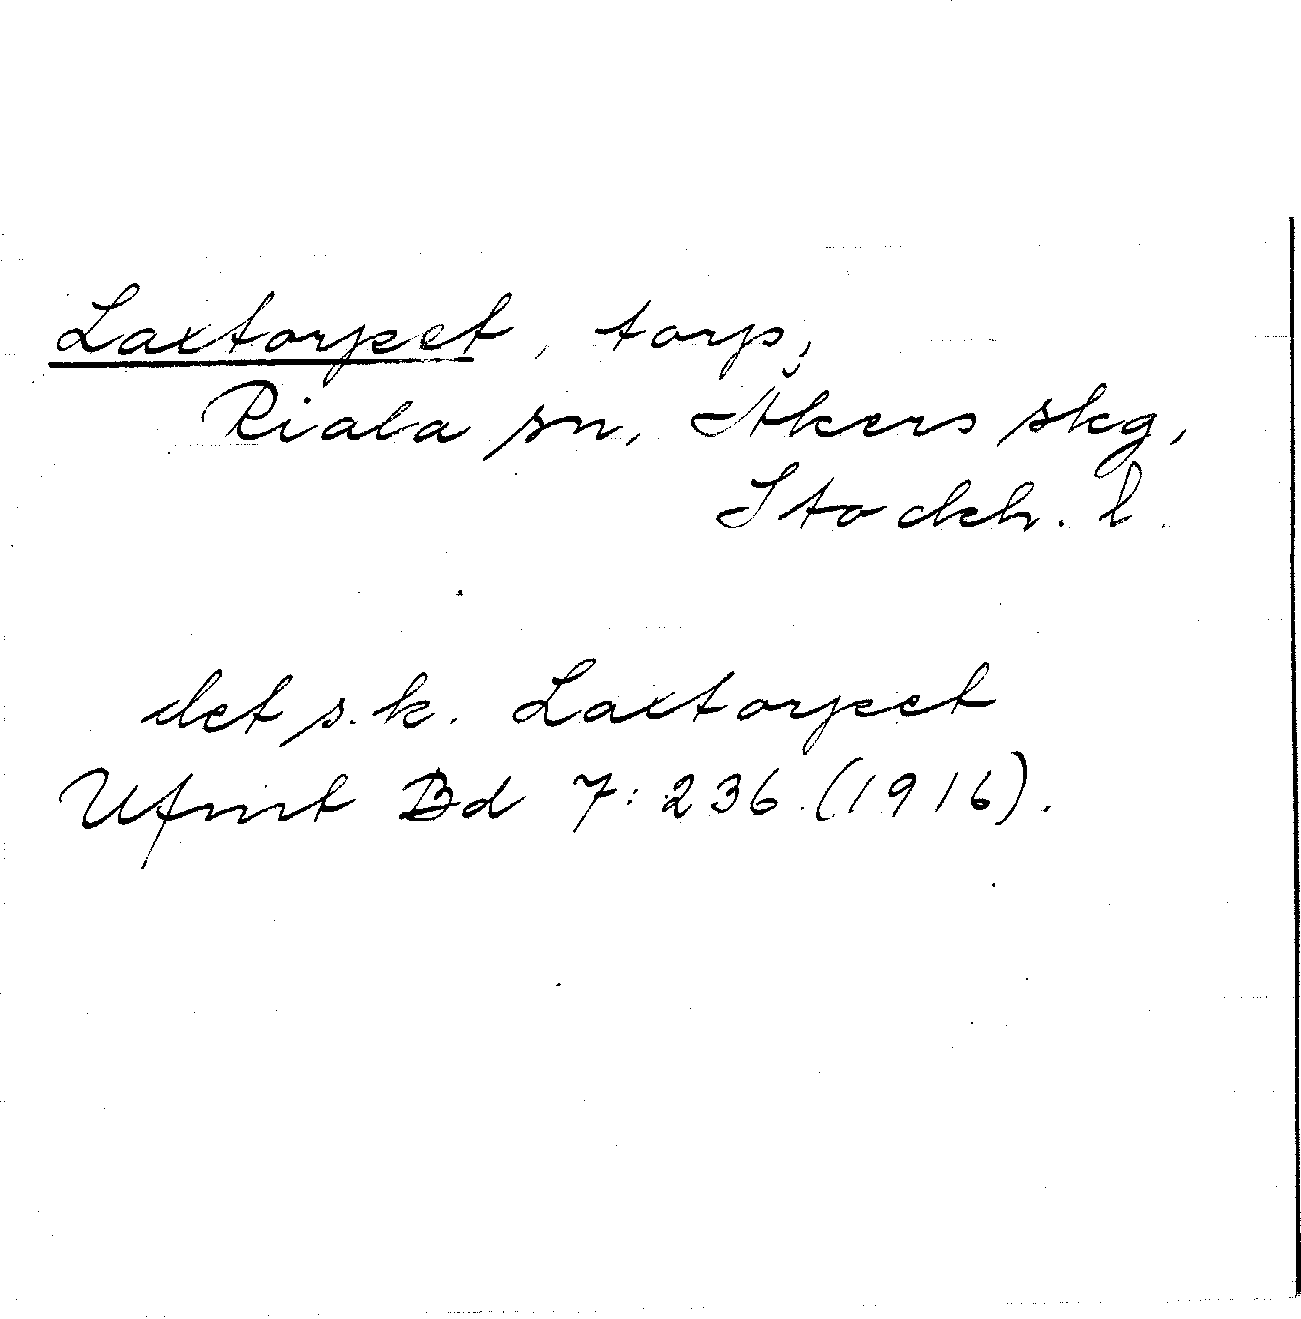 Laxtorpet, torp,
Riala sn, Åkers skg,
Stockh. l.
det s.k. Laxtorpet
Ufmt Bd 7:236 (1916).